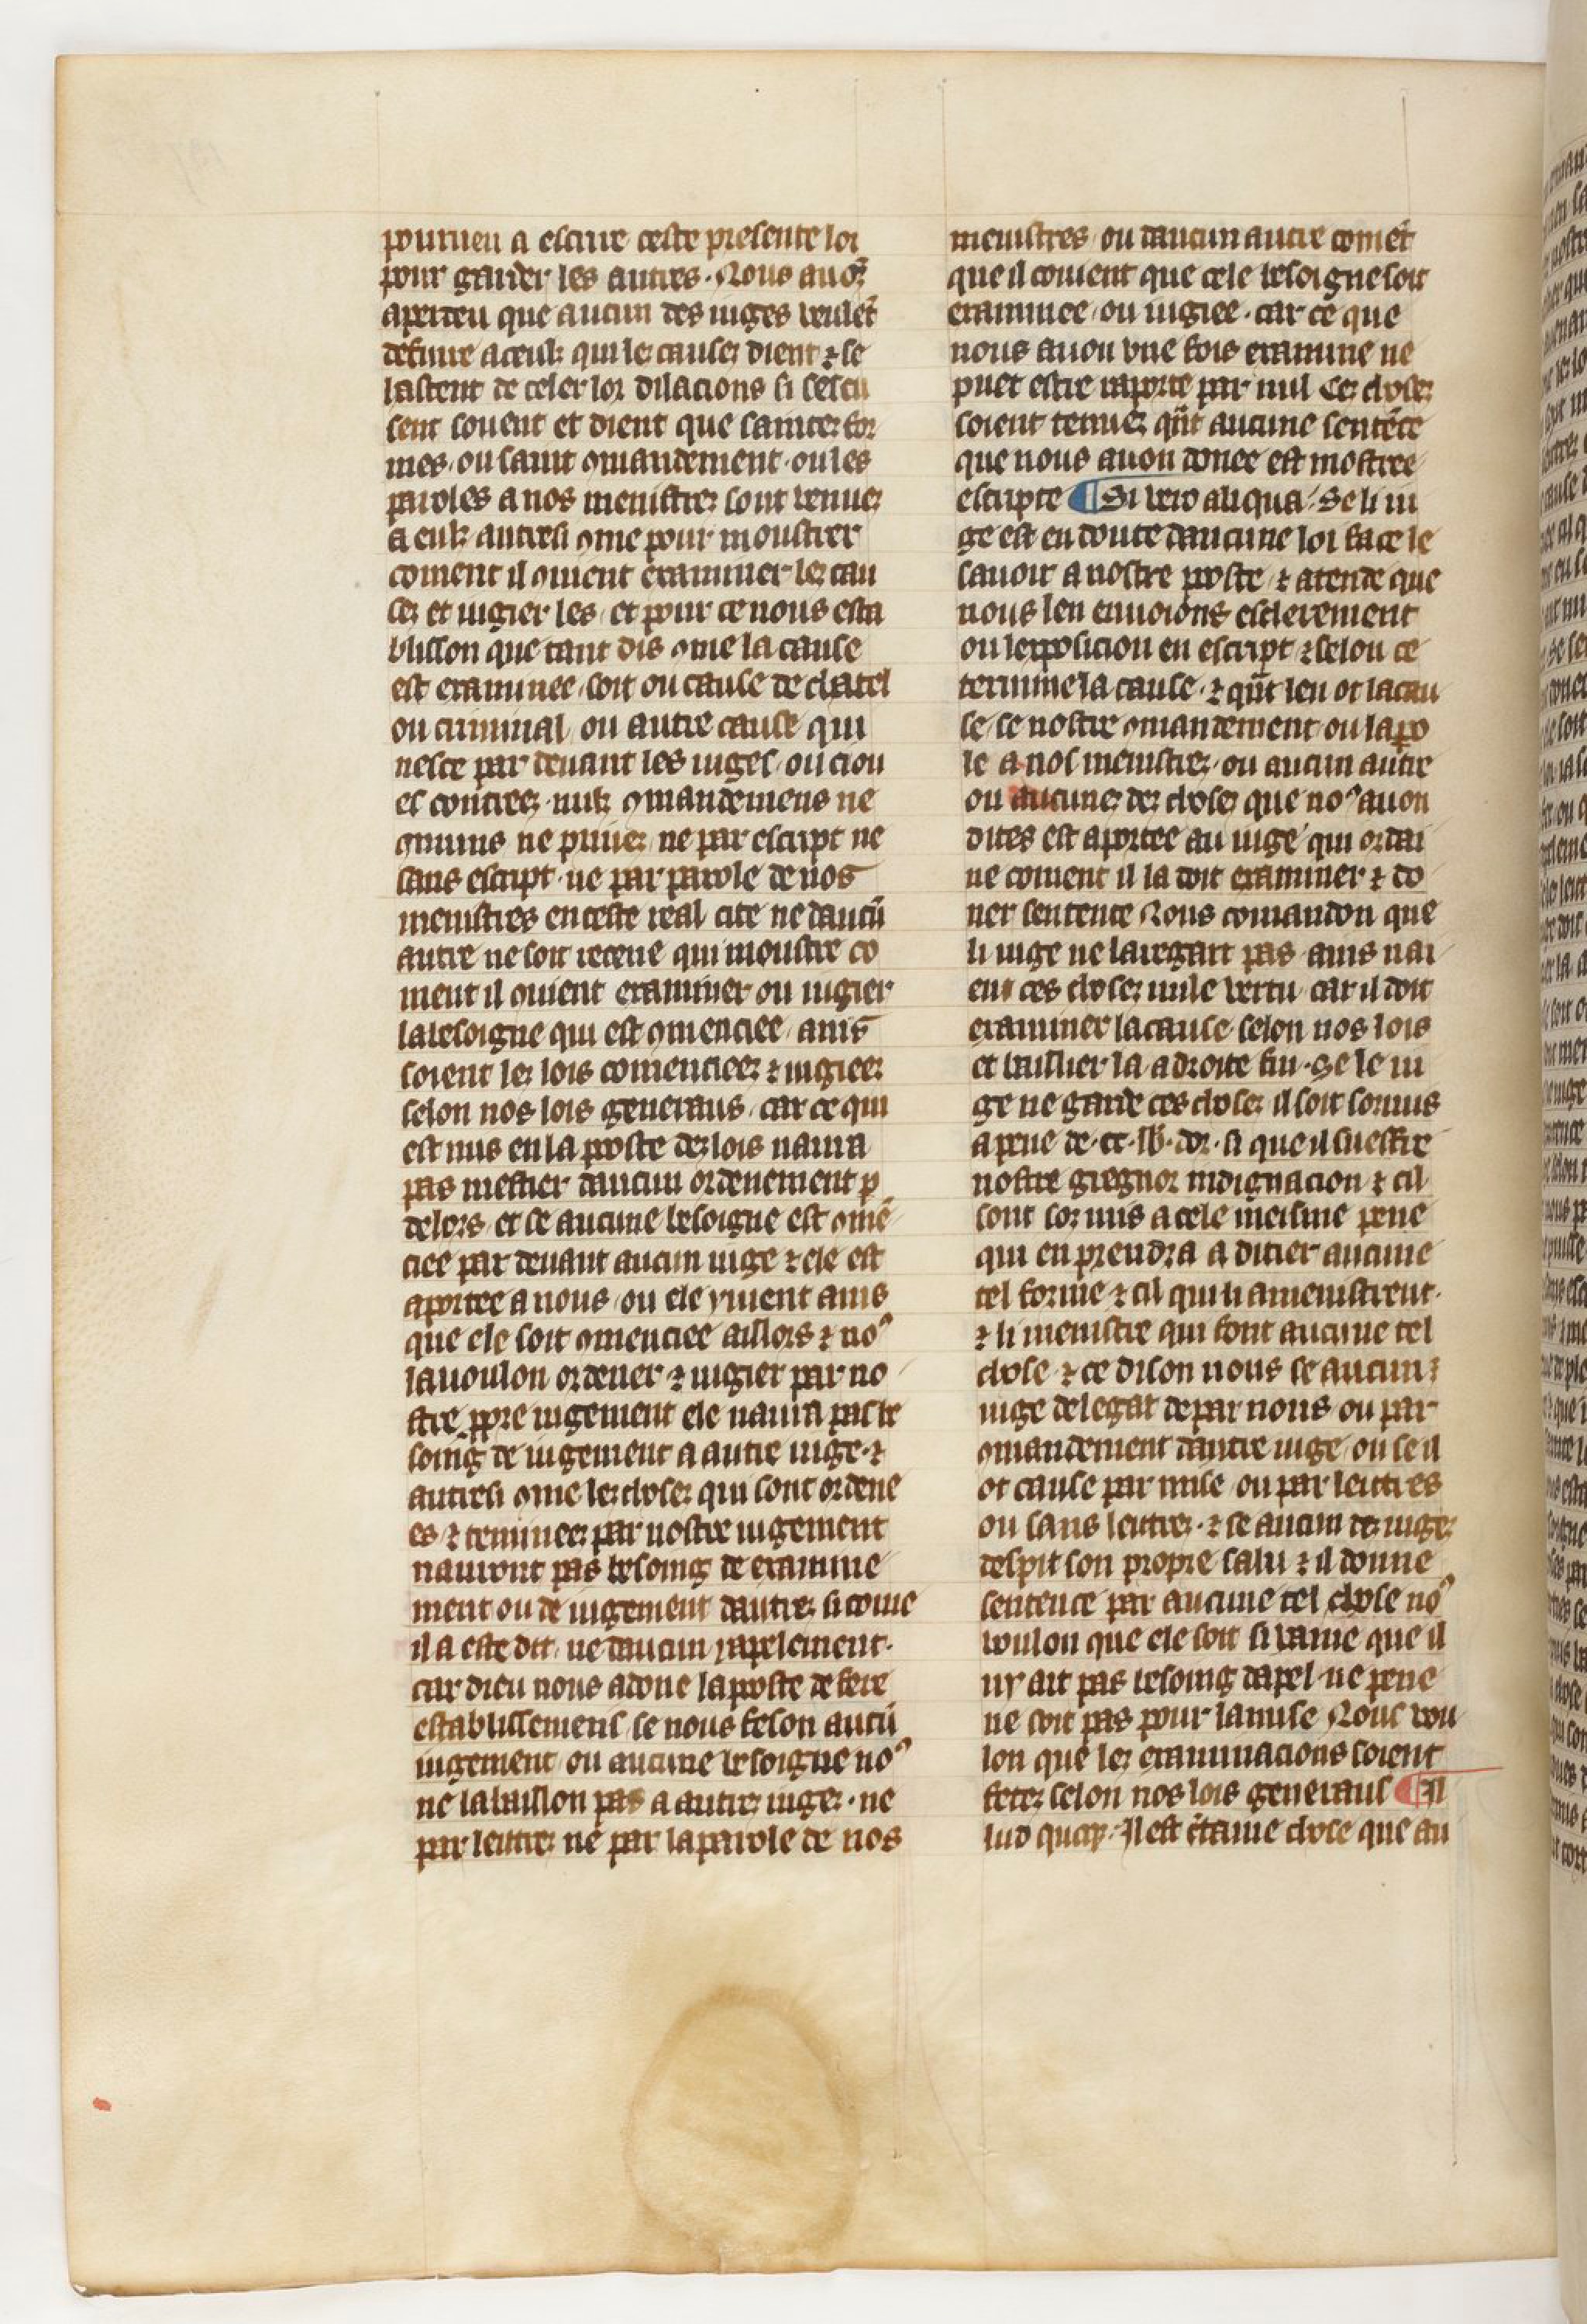 pourueu a escrire ceste presente loi
pour garder les autres. Nous auoȝ
aperceu que aucun des iuges veulēt
definire a ceulz qui les causes dient ⁊ se
hastent de celer lor dilacions si sescu
sent souent et dient que saintes for
mes ou saint ꝯmandement ou les
paroles a nos menistres sont venues
a eulz autresi ꝯme pour moustrer
coment il ꝯuient examiner les cau
ses et iugier les, et pour ce nous esta
blisson que tant dis ꝯme la cause
est examinee soit ou cause de chatel
ou criminal ou autre cause qui
nesce par deuant les iuges ou ciou
es contrees nulz ꝯmandemens ne
ꝯmuns ne priues ne par escript ne
sans escript ne par parole de nos
menistres en ceste real cite ne daucū
autre ne soit receue qui moustre co
ment il ꝯuient examiner ou iugier
la besoigne qui est ꝯmenciee ains
soient les lois comenciees ⁊ iugiees
selon nos lois generaus, car ce qui
est mis en la poste des lois naura
pas mestier daucun ordenement ꝑ
dehors, et se aucune besoigne est ꝯmē
ciee par deuant aucun iuge ⁊ ele est
aportee a nous ou ele y vient ains
que ele soit ꝯmenciee aillors ⁊ noꝰ
la voulon ordener ⁊ iugier par no
stre ꝓpre iugement ele naura pas be
soing de iugement a autre iuge ⁊
autresi ꝯme les choses qui sont ordene
es ⁊ teminees par nostre iugement
nauront pas besoing de examine
ment ou de iugement dautres si come
il a este dit, ne daucun rapelement.
car dieu nous a done la poste de fere
establissemens se nous feson aucū
iugement ou aucune besoigne noꝰ
ne la baillon pas a autres iuges ne
par lettres ne par la parole de nos
menistres ou daucun autre comēt
que il couient que cele besoigne soit
examinee ou iugiee. car ce que
nous auon vne fois examine ne
puet estre raporte par nul Ces choses
soient tenues qn̄t aucune sentēce
que nous auon donee est mostree
escripte ¶ Si vero aliqua. Se li iu
ge est en doute daucune loi face le
sauoir a nostre poste ⁊ atende que
nous len enuoions esclerement
ou lexposicion en escript ⁊ selon ce
termine la cause. ⁊ qn̄t len ot la cau
se se nostre ꝯmandement ou la pa
le a nos menistres ou aucun autre
ou aucunes des choses que noꝰ auon
dites est aportee au iuge qui ordai
ne coment il la doit examiner ⁊ do
ner sentence Nous comandon que
li iuge ne la regart pas ains nai
ent ces choses nule vertu car il doit
examiner la cause selon nos lois
et baillier la a droite fin. Se le iu
ge ne garde ces choses il soit somis
a peine de .cc. lb. dor. si que il sueffre
nostre gregnor indignacion ⁊ cil
sont sozmis a cele meisme peine
qui en prendra a ditier aucune
tel forme ⁊ cil qui li amenistrent.
⁊ li menistre qui font aucune tel
chose ⁊ ce dison nous se aucun ⁊
iuge delegat de par nous ou par
ꝯmandement dautre iuge ou se il
ot cause par mise ou par lettres
ou sans lettres. ⁊ se aucun des iuges
despit son propre salu ⁊ il donne
sentence par aucune tel chose noꝰ
voulon que ele soit si vaine que il
ny ait pas besoing dapel ne peine
ne soit pas pour la mise Nous vou
lon que les examinacions soient
fetes selon nos lois generaus ¶ Il
lud quoqꝫ. Il est c̄taine chose que au